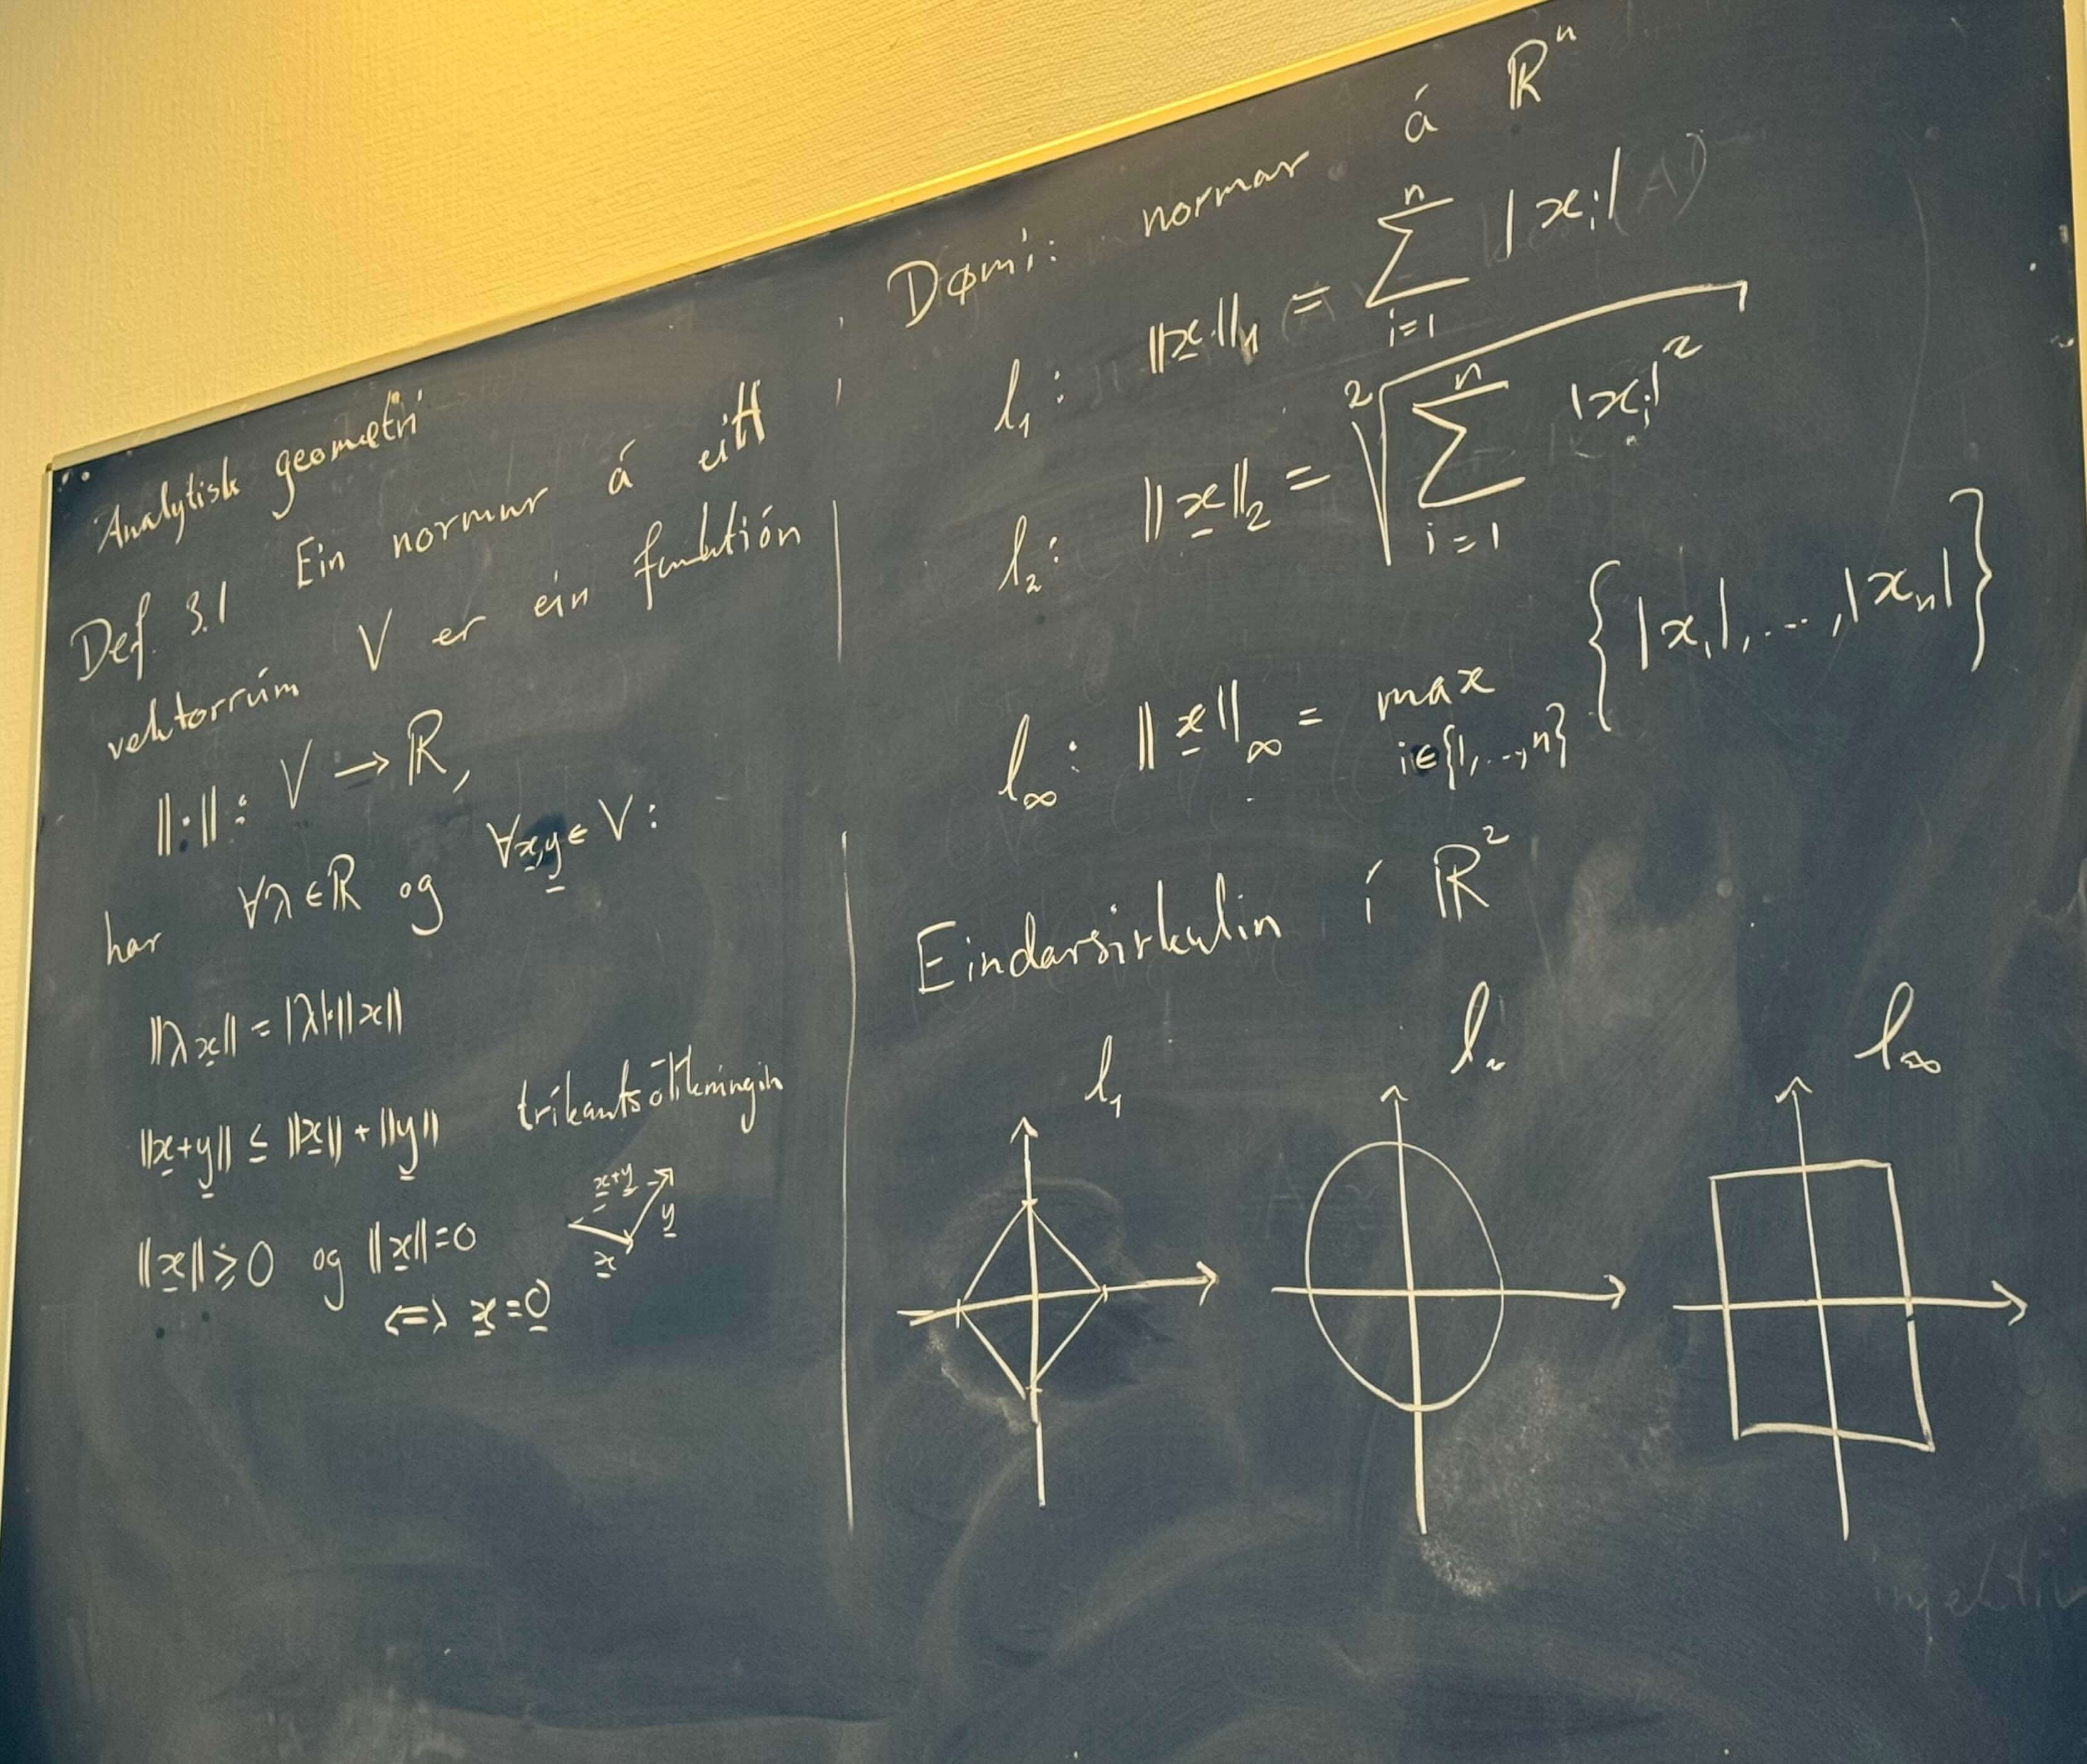 Analytisk geometri
Def. 3.1 Ein normur á eitt
vektorrúm V er ein funktión
||·||: V → ℝ,
har ∀λ∈ℝ og ∀x̲,y̲∈V:
||λx̲|| = |λ|·||x||
||x̲+y̲|| ≤ ||x̲||+||y̲|| tríkantsólíkningin
x̲+y̲
y̲
x̲
||x̲|| ≥ 0 og ||x̲||=0
⇔ x̲=0̲
Dømi: normar á ℝⁿ
l₁: ||x̲||₁ = ∑ᵢ₌₁ⁿ |xᵢ|
l₂: ||x̲||₂ = ²√(∑ᵢ₌₁ⁿ |xᵢ|²)
l∞: ||x̲||∞ = max i∈{1,...,n} {|x₁|,...,|xₙ|}
Eindarsirkulin í ℝ²
l₁ l₂ l∞
injektiv